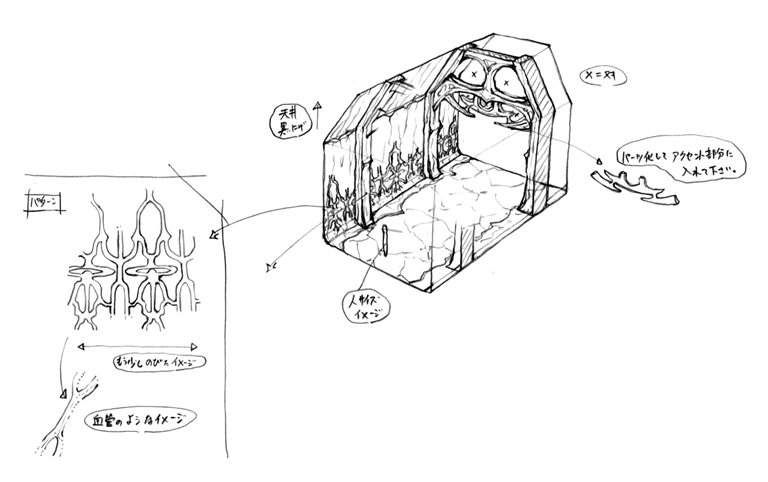 天井
黒ったげ
X=ヌキ
パーツ化して アクセント部分に
入れて下さい。
パターン
人サイズ
イメージ
もう少しのびたイメージ
血管のようなイメージ